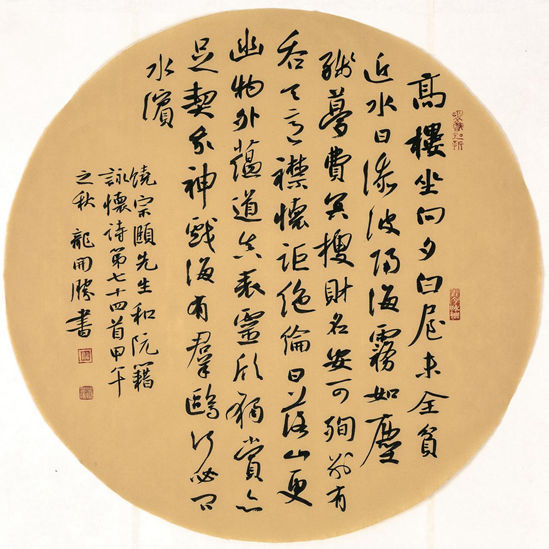 高樓坐向夕白屋未全貧
近水日添波隔海霧如塵
夢費冥搜財名安可殉有
吞天意襟懷詎絕倫日落山更
幽物外蘊道真表靈欣獨賞亦
足契我神戲海有羣鷗何必問
水濱
饒宗頤先生和阮籍
詠懷詩第七十四首甲午
之秋龍開勝書